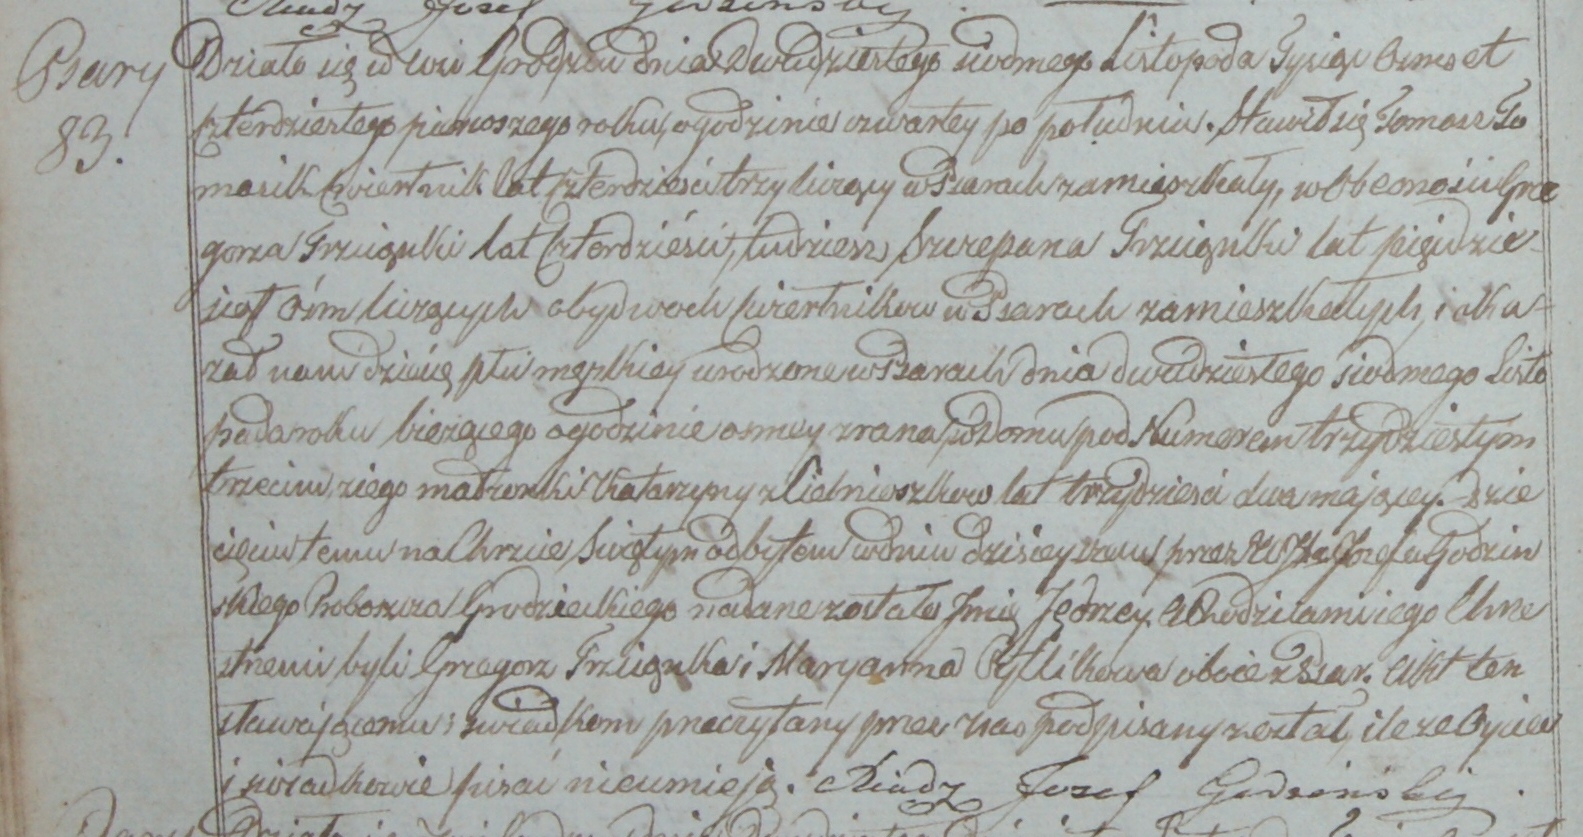 Xiądz Jozef Godzinsky.
Psary
83.
Działo się w wsi Grodzcu dnia dwudziestego siodmego Listopada Tysiąc Osmset
czterdziestego pierwszego roku, o godzinie czwartey po południu. Stawił się Tomasz To
masik Cwiertnik lat czterdzieści trzy liczący w Psarach zamięszkały, w obecności Grze
gorza Trzcionki lat czterdzieści, tudziesz Szczepana Trzcionki lat pięcdzie-
siąt ośm liczących obydwoch Cwiertnikow w Psarach zamieszkałych, i oka-
zał nam dziecię płci męzkiey urodzone w Psarach dnia dwudziestego siodmego Listo
pada roku bieżącego o godzinie osmey zrana, w Domu pod Numerem trzydziestym
trzecim, z iego małżonki Katarzyny z lat trzydzieści dwa maiącey. Dzie
cięciu temu na Chrzcie Swiętym odbytem w dniu dzisieyszem przez Jozefa Godzin
skiego Proboszcza Grodzieckiego nadane zostało Imię Jędrzey. a Rodzicami iego Chrze
stnemi byli Grzegorz Trzcionka i Maryanna oboie z Psar. Akt ten
stawaiącemu i swiadkom przeczytany przez nas podpisany został, ile ze Oyciec
i swiadkowie pisać nieumieją. Xiądz Jozef Godzinsky.
Psary Działo się